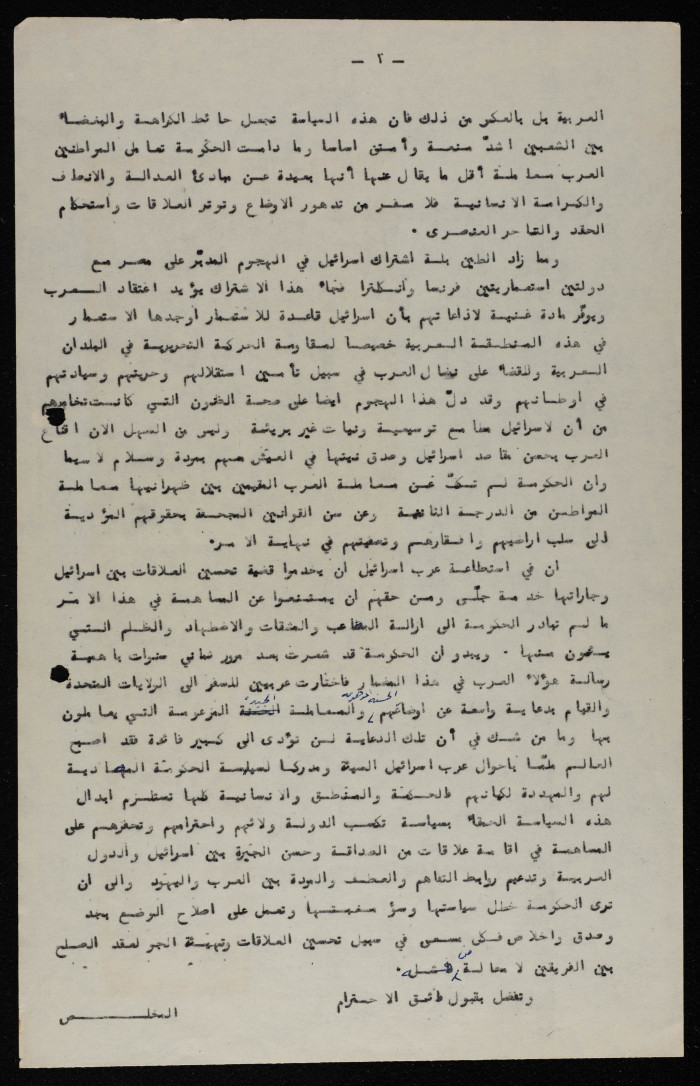 — ٢ —
العربية بل بالعكس من ذلك فان هذه السياسة تجعل حائط الكراهة والبغضاء
بين الشعبين اشدّ منعة وأمتن اساسا وما دامت الحكومة تعامل المواطنين
العرب معاملة أقل ما يقال عنها أنها بعيدة عن مبادئ العدالة والانصاف
والكرامة الانسانية فلا مفر من تدهور الاوضاع وتوتر العلاقات واستحكام
الحقد والتناحر العنصرى .
ومما زاد الطين بلة اشتراك اسرائيل في الهجوم المدبّر على مصر مع
دولتين استعماريتين فرنسا وأنكلترا فجاء هذا الاشتراك يؤيد اعتقاد العرب
ويوفّر مادة غنية لاذاعاتهم بأن اسرائيل قاعدة للاستعمار أوجدها الاستعمار
في هذه المنطقة العربية خصيصا لمقاومة الحركة التحريرية في البلدان
العربية وللقضاء على نضال العرب في سبيل تأمين استقلالهم وحريتهم وسيادتهم
في اوطانهم وقد دلّ هذا الهجوم ايضا على صحة الظنون التي كانت تخامرهم
من أن لاسرائيل مطامع توسيعية ونيات غير بريئة وليس من السهل الان اقناع
العرب بحسن مقاصد اسرائيل وصدق نيتها في العيش معهم بمودة وسلام لا سيما
وان الحكومة لم تكفّ عن معاملة العرب المقيمين بين ظهرانيها معاملة
المواطنين من الدرجة الثانية وعن سن القوانين المجحفة بحقوقهم المؤدية
الى سلب اراضيهم وافقارهم وتصفيتهم في نهاية الامر.
ان في استطاعة عرب اسرائيل ان يخدموا قضية تحسين العلاقات بين اسرائيل
وجاراتها خدمة جلّى ومن حقهم ان يمتنعوا عن المساهمة في هذا الامر
ما لم تبادر الحكومة الى ازالة المتاعب والمشقات والاضطهاد والظلم التي
يشكون منها . ويبدو ان الحكومة قد شعرت بعد مرور ثماني سنوات باهمية
رسالة هؤلاء العرب في هذا المضمار فاختارت عربيين للسفر الى الولايات المتحدة
والقيام بدعاية واسعة عن اوضاعهم الحسنة والمعاملة الجيدة المزعومة التي يعاملون
بها وما من شك في أن تلك الدعاية لن تؤدى الى كبير فائدة فقد اصبح
العالم ملمّا باحوال عرب اسرائيل السيئة ومدركا لسياسة الحكومة المعادية
لهم والمهددة لكيانهم فالحكمة والمنطق والانسانية كلها تستلزم ابدال
هذه السياسة الحمقاء بسياسة تكسب الدولة ولائهم واحترامهم وتحفزهم على
المساهمة في اقامة علاقات من الصداقة وحسن الجيرة بين اسرائيل والدول
العربية وتدعيم روابط التفاهم والعطف والمودة بين العرب واليهود والى ان
ترى الحكومة خطل سياستها وسؤ مغبتها وتعمل على اصلاح الوضع بجد
وصدق واخلاص فكل مسعى في سبيل تحسين العلاقات وتهيئة الجو لعقد الصلح
بين الفريقين لا محالة من فشله.
وتفضل بقبول فائق الاحترام
المخلص